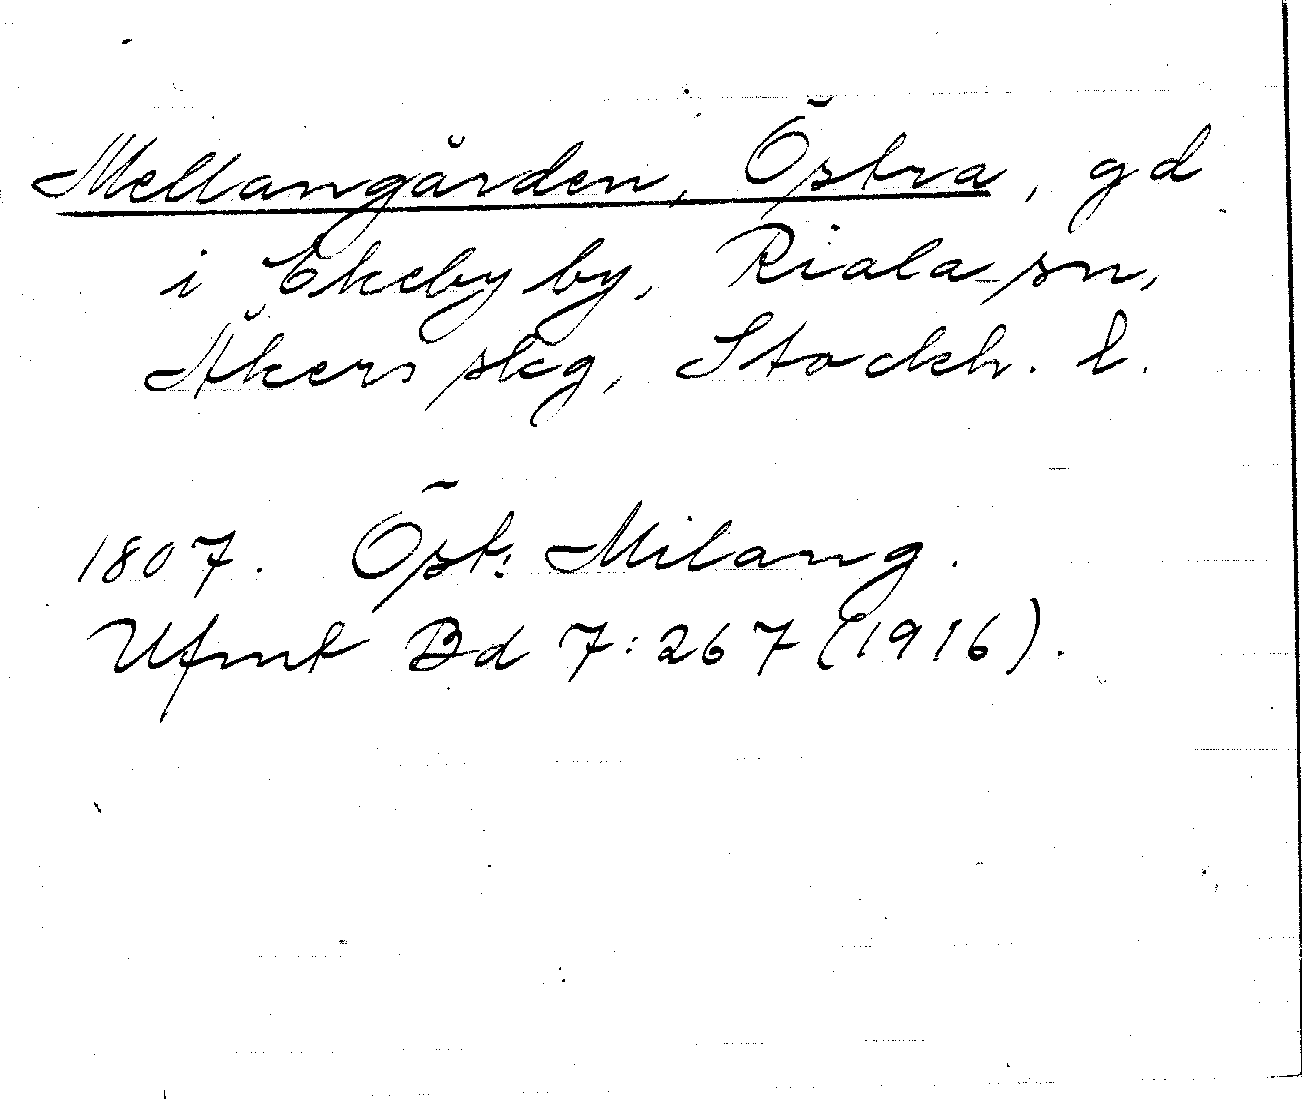 Mellangården, Östra, gd
i Ekeby by, Riala sn,
Åkers skg, Stockh. l.
1807. Öst: Milang.
Ufmt Bd 7:267 (1916).